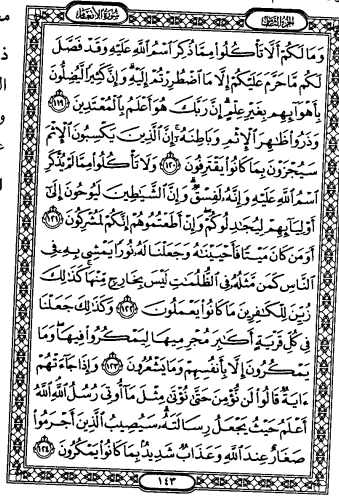 سورة الأنعام
الجزء الثامن
وَمَا لَكُمْ أَلَّا تَأْكُلُوا۟ مِمَّا ذُكِرَ ٱسْمُ ٱللَّهِ عَلَيْهِ وَقَدْ فَصَّلَ
لَكُم مَّا حَرَّمَ عَلَيْكُمْ إِلَّا مَا ٱضْطُرِرْتُمْ إِلَيْهِ ۗ وَإِنَّ كَثِيرًا لَّيُضِلُّونَ
بِأَهْوَآئِهِم بِغَيْرِ عِلْمٍ ۗ إِنَّ رَبَّكَ هُوَ أَعْلَمُ بِٱلْمُعْتَدِينَ ١١٩
وَذَرُوا۟ ظَٰهِرَ ٱلْإِثْمِ وَبَاطِنَهُۥٓ ۚ إِنَّ ٱلَّذِينَ يَكْسِبُونَ ٱلْإِثْمَ
سَيُجْزَوْنَ بِمَا كَانُوا۟ يَقْتَرِفُونَ ١٢٠ وَلَا تَأْكُلُوا۟ مِمَّا لَمْ يُذْكَرِ
ٱسْمُ ٱللَّهِ عَلَيْهِ وَإِنَّهُۥ لَفِسْقٌ ۗ وَإِنَّ ٱلشَّيَٰطِينَ لَيُوحُونَ إِلَىٰٓ
أَوْلِيَآئِهِمْ لِيُجَٰدِلُوكُمْ ۖ وَإِنْ أَطَعْتُمُوهُمْ إِنَّكُمْ لَمُشْرِكُونَ ١٢١
أَوَمَن كَانَ مَيْتًا فَأَحْيَيْنَٰهُ وَجَعَلْنَا لَهُۥ نُورًا يَمْشِى بِهِۦ فِى
ٱلنَّاسِ كَمَن مَّثَلُهُۥ فِى ٱلظُّلُمَٰتِ لَيْسَ بِخَارِجٍ مِّنْهَا ۚ كَذَٰلِكَ
زُيِّنَ لِلْكَٰفِرِينَ مَا كَانُوا۟ يَعْمَلُونَ ١٢٢ وَكَذَٰلِكَ جَعَلْنَا
فِى كُلِّ قَرْيَةٍ أَكَٰبِرَ مُجْرِمِيهَا لِيَمْكُرُوا۟ فِيهَا ۖ وَمَا
يَمْكُرُونَ إِلَّا بِأَنفُسِهِمْ وَمَا يَشْعُرُونَ ١٢٣ وَإِذَا جَآءَتْهُمْ
ءَايَةٌ قَالُوا۟ لَن نُّؤْمِنَ حَتَّىٰ نُؤْتَىٰ مِثْلَ مَآ أُوتِىَ رُسُلُ ٱللَّهِ ۘ ٱللَّهُ
أَعْلَمُ حَيْثُ يَجْعَلُ رِسَالَتَهُۥ ۗ سَيُصِيبُ ٱلَّذِينَ أَجْرَمُوا۟
صَغَارٌ عِندَ ٱللَّهِ وَعَذَابٌ شَدِيدٌۢ بِمَا كَانُوا۟ يَمْكُرُونَ ١٢٤
١٤٣